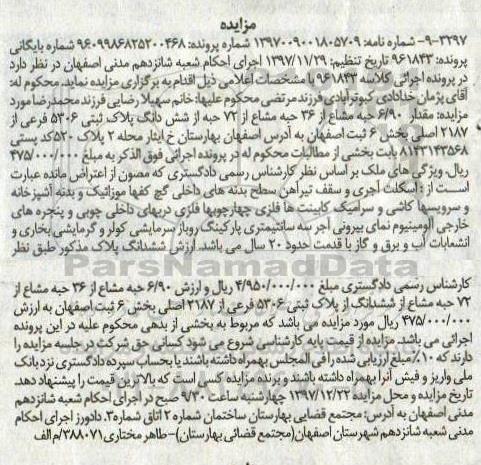 مزایده
۹-۳۲۹۷- شماره نامه: ۱۳۹۷۰۰۹۰۰۱۸۰۵۷۰۹ شماره پرونده: ۹۶۰۹۹۸۶۸۲۵۲۰۰۴۶۸ شماره بایگانی
پرونده: ۹۶۱۸۴۳ تاریخ تنظیم: ۱۳۹۷/۱۱/۲۹ اجرای احکام شعبه شانزدهم مدنی اصفهان در نظر دارد
در پرونده اجرائی کلاسه ۹۶۱۸۴۳ با مشخصات اعلامی ذیل اقدام به برگزاری مزایده نماید. محکوم له:
آقای پژمان خدادادی کبوترآبادی فرزند مرتضی محکوم علیها: خانم سهیلا رضایی فرزند محمدرضا مورد
مزایده: مقدار ۶/۹۰ حبه مشاع از ۳۶ حبه مشاع از ۷۲ حبه از شش دانگ پلاک ثبتی ۵۳۰۶ فرعی از
۲۱۸۷ اصلی بخش ۶ ثبت اصفهان به آدرس اصفهان بهارستان خ ایثار محله ۲ پلاک ۵۲۰ کد پستی
۸۱۴۳۱۴۳۵۶۸ بابت بخشی از مطالبات محکوم له در پرونده اجرائی فوق الذکر به مبلغ ۴۷۵/۰۰۰/۰۰۰
ریال. ویژگی های ملک بر اساس نظر کارشناس رسمی دادگستری که مصون از اعتراض مانده عبارت
است از : اسکلت آجری و سقف تیرآهن سطح بدنه های داخلی گچ کفها موزائیک و بدنه آشپزخانه
و سرویسها کاشی و سرامیک کابینت ها فلزی چهارچوبها فلزی دربهای داخلی چوبی و پنجره های
خارجی آلومینیوم نمای بیرونی آجر سه سانتیمتری پارکینگ روباز سرمایشی کولر و گرمایشی بخاری و
انشعابات آب و برق و گاز با قدمت حدود ۲۰ سال می باشد. ارزش ششدانگ پلاک مذکور طبق نظر
ParsNamadData
کارشناس رسمی دادگستری مبلغ ۴/۹۵۰/۰۰۰/۰۰۰ ریال و ارزش ۶/۹۰ حبه مشاع از ۳۶ حبه مشاع از
۷۲ حبه مشاع از ششدانگ از پلاک ثبتی ۵۳۰۶ فرعی از ۲۱۸۷ اصلی بخش ۶ ثبت اصفهان به ارزش
۴۷۵/۰۰۰/۰۰۰ ریال مورد مزایده می باشد که مربوط به بخشی از بدهی محکوم علیه در این پرونده
اجرائی می باشد. مزایده از قیمت پایه کارشناسی شروع می شود کسانی حق شرکت در جلسه مزایده را
دارند که ۱۰٪ مبلغ ارزیابی شده را فی المجلس بهمراه داشته باشند یا بحساب سپرده دادگستری نزد بانک
ملی واریز و فیش آنرا بهمراه داشته باشند و برنده مزایده کسی است که بالاترین قیمت را پیشنهاد دهد.
تاریخ مزایده و محل مزایده ۱۳۹۷/۱۲/۲۲ چهارشنبه ساعت ۹/۳۰ صبح در اجرای احکام شعبه شانزدهم
مدنی اصفهان به آدرس: مجتمع قضایی بهارستان ساختمان شماره ۲ اتاق شماره ۳. دادورز اجرای احکام
مدنی شعبه شانزدهم شهرستان اصفهان (مجتمع قضائی بهارستان) - طاهر مختاری ۳۸۸۰۷۱/م الف